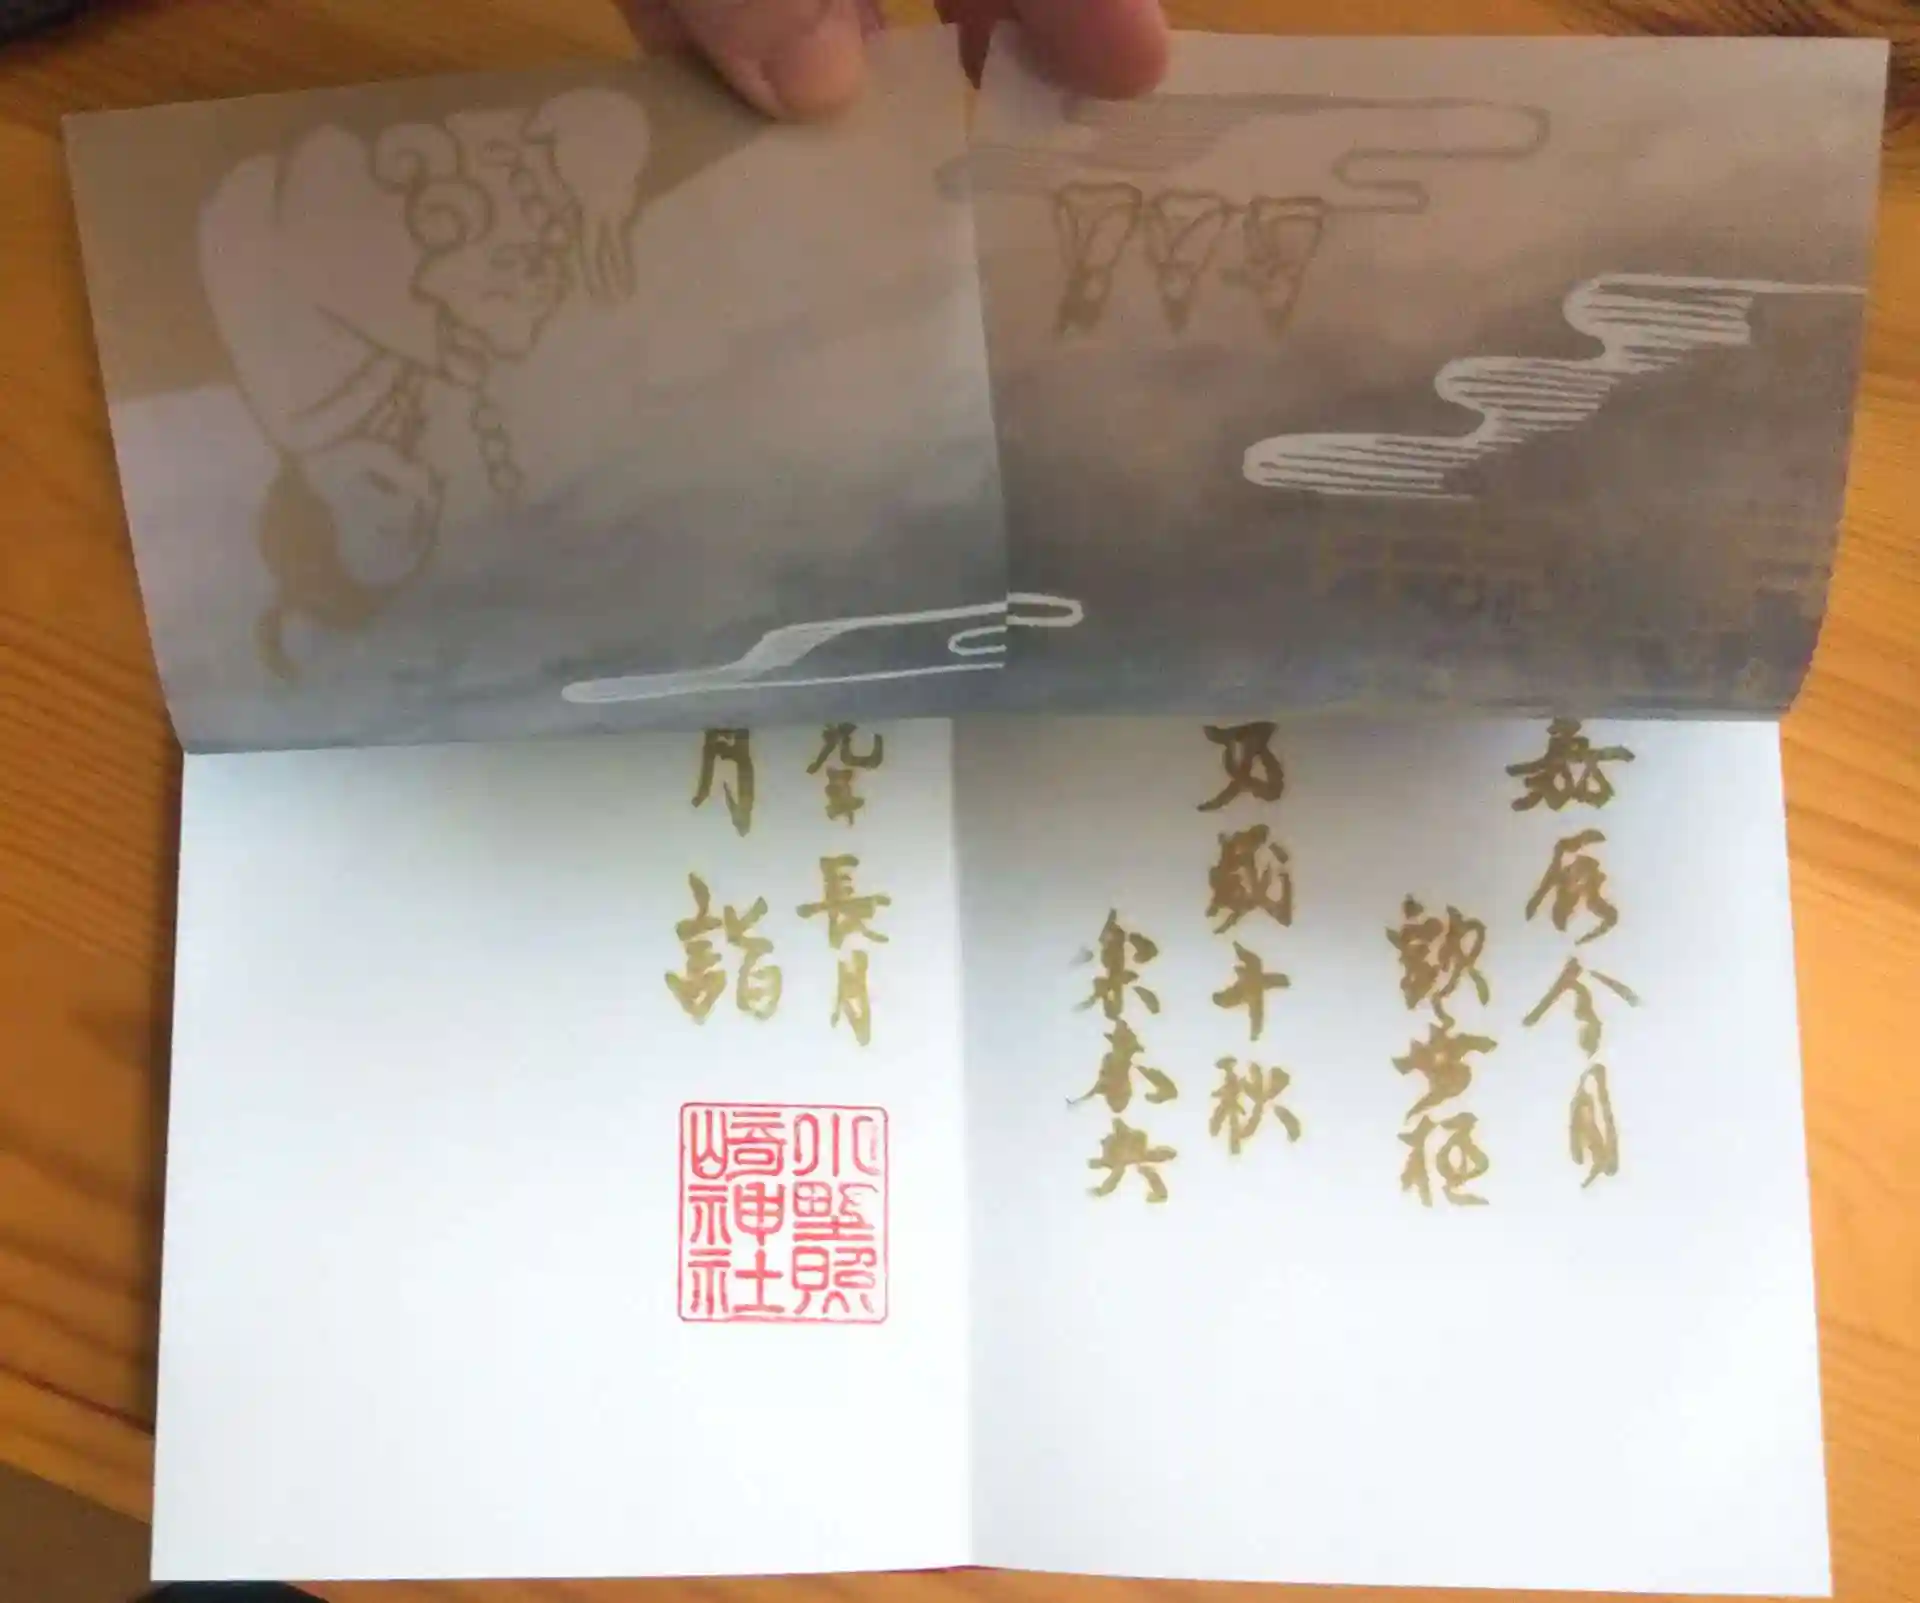 嘉辰令月
歓無極
万歳千秋
楽未央
元年 長月
月詣
小野照
崎神社